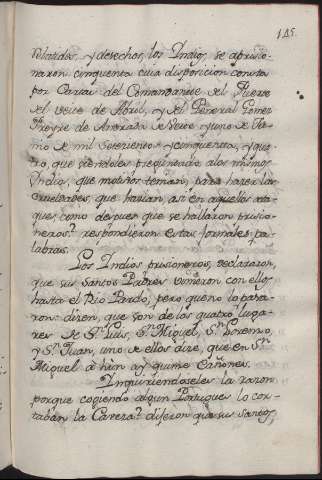 145.
y desechos los Indios, se aprisio-
naron cinquenta cuia disposicion consta
por Cartas del Comandante del Fuerte
del veite de Abril, y del General Gomez
Freyre de Andrada de Nueve y uno de Ju-
nio de mil Setecientos y cinquenta, y qua-
tro, que siendoles preguntado alos mismos
Indios, que motivos tenian, para hazer las
crueldades, que havian, asi en aquellos ata-
ques como despues que se hallaron prisio-
neros; respondieron estas formales pa-
labras.
Los Indios prisioneros, declararon,
que sus Santos Padres vinieron con ellos
hasta el Rio Pardo, pero que no lo pasa-
ron: diren, que son de los quatro luga-
res de Sn. Luis, Sn. Miguel, Sn. Lorenzo,
y Sn. Juan, uno de ellos dice, que en Sn.
Miguel à hun ay quinze Cañones.
Inquiriendoseles la razon
porque cogiendo algun Portugues lo cor-
taban la Cavera? dijeron que sus Santos,